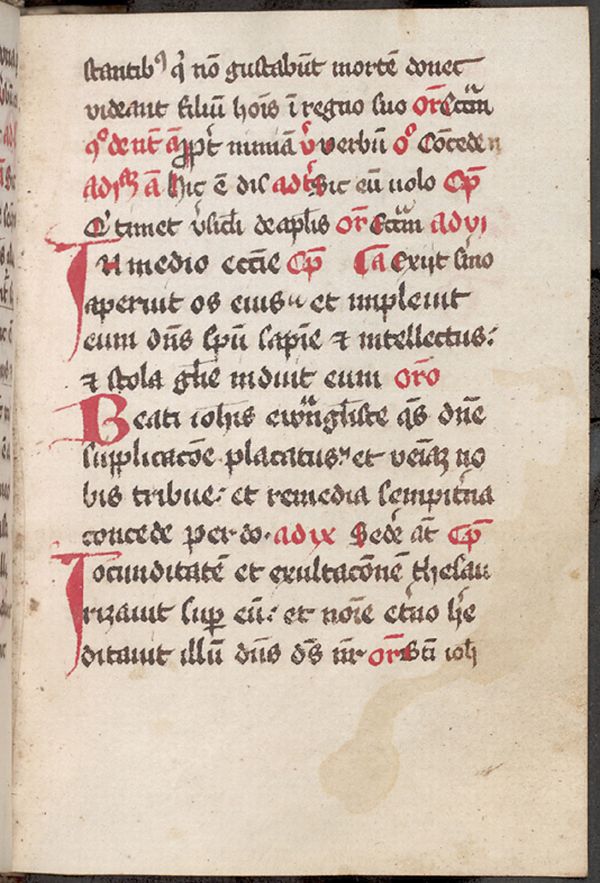 stantib⁹ q̇ nō gustabūt mortē donec
videant filiū hoı̄s ī regno suo or̄ Eccl̄am
aпpр̇t nimiā v̇ verbū Cōcede
ad Hic ē dil adt Sic eū uolo Cp̄
timet de apl̄is or̄ Eccl̄am ad vi
In medio ecc̄ie Cp̄ Ca Exijt s̄mo
aperuit os eius et impleuit
eum dn̄s sp̄u sapīe ⁊ intellectus:
⁊ stola gl̄ie induit eum or̄o
Beati ioh̄is ewāngl̄iste q̄s dn̄e
supplicacōe placatus et veīaꝫ no
bis tribue: et remedia sempit̄na
concede per do. ad ix Sed̄e at̄ Cp̄
Iocunditatē et exultacōnē thesau
rizauit sup̄ eū: et noı̄e et̄no he̅
ditauit illū dn̄s ds̄ nr̄ or̄ Bt̄i ioh̄